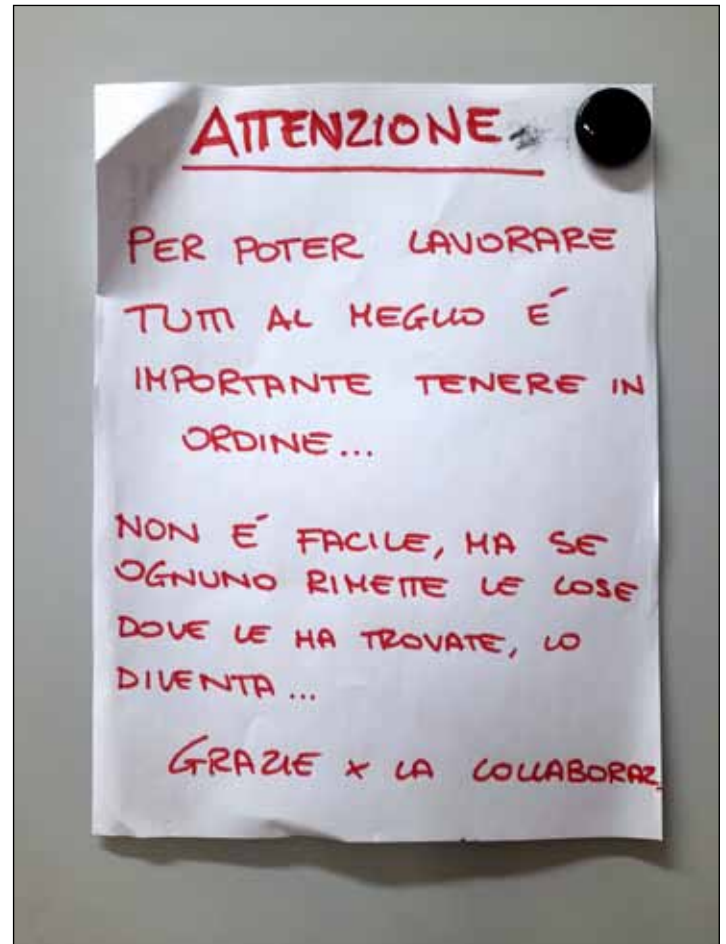 ATTENZIONE
PER POTER LAVORARE
TUTTI AL MEGLIO É
IMPORTANTE TENERE IN
ORDINE...
NON É FACILE, MA SE
OGNUNO RIMETTE LE COSE
DOVE LE HA TROVATE, LO
DIVENTA...
GRAZIE x LA COLLABORAZ.